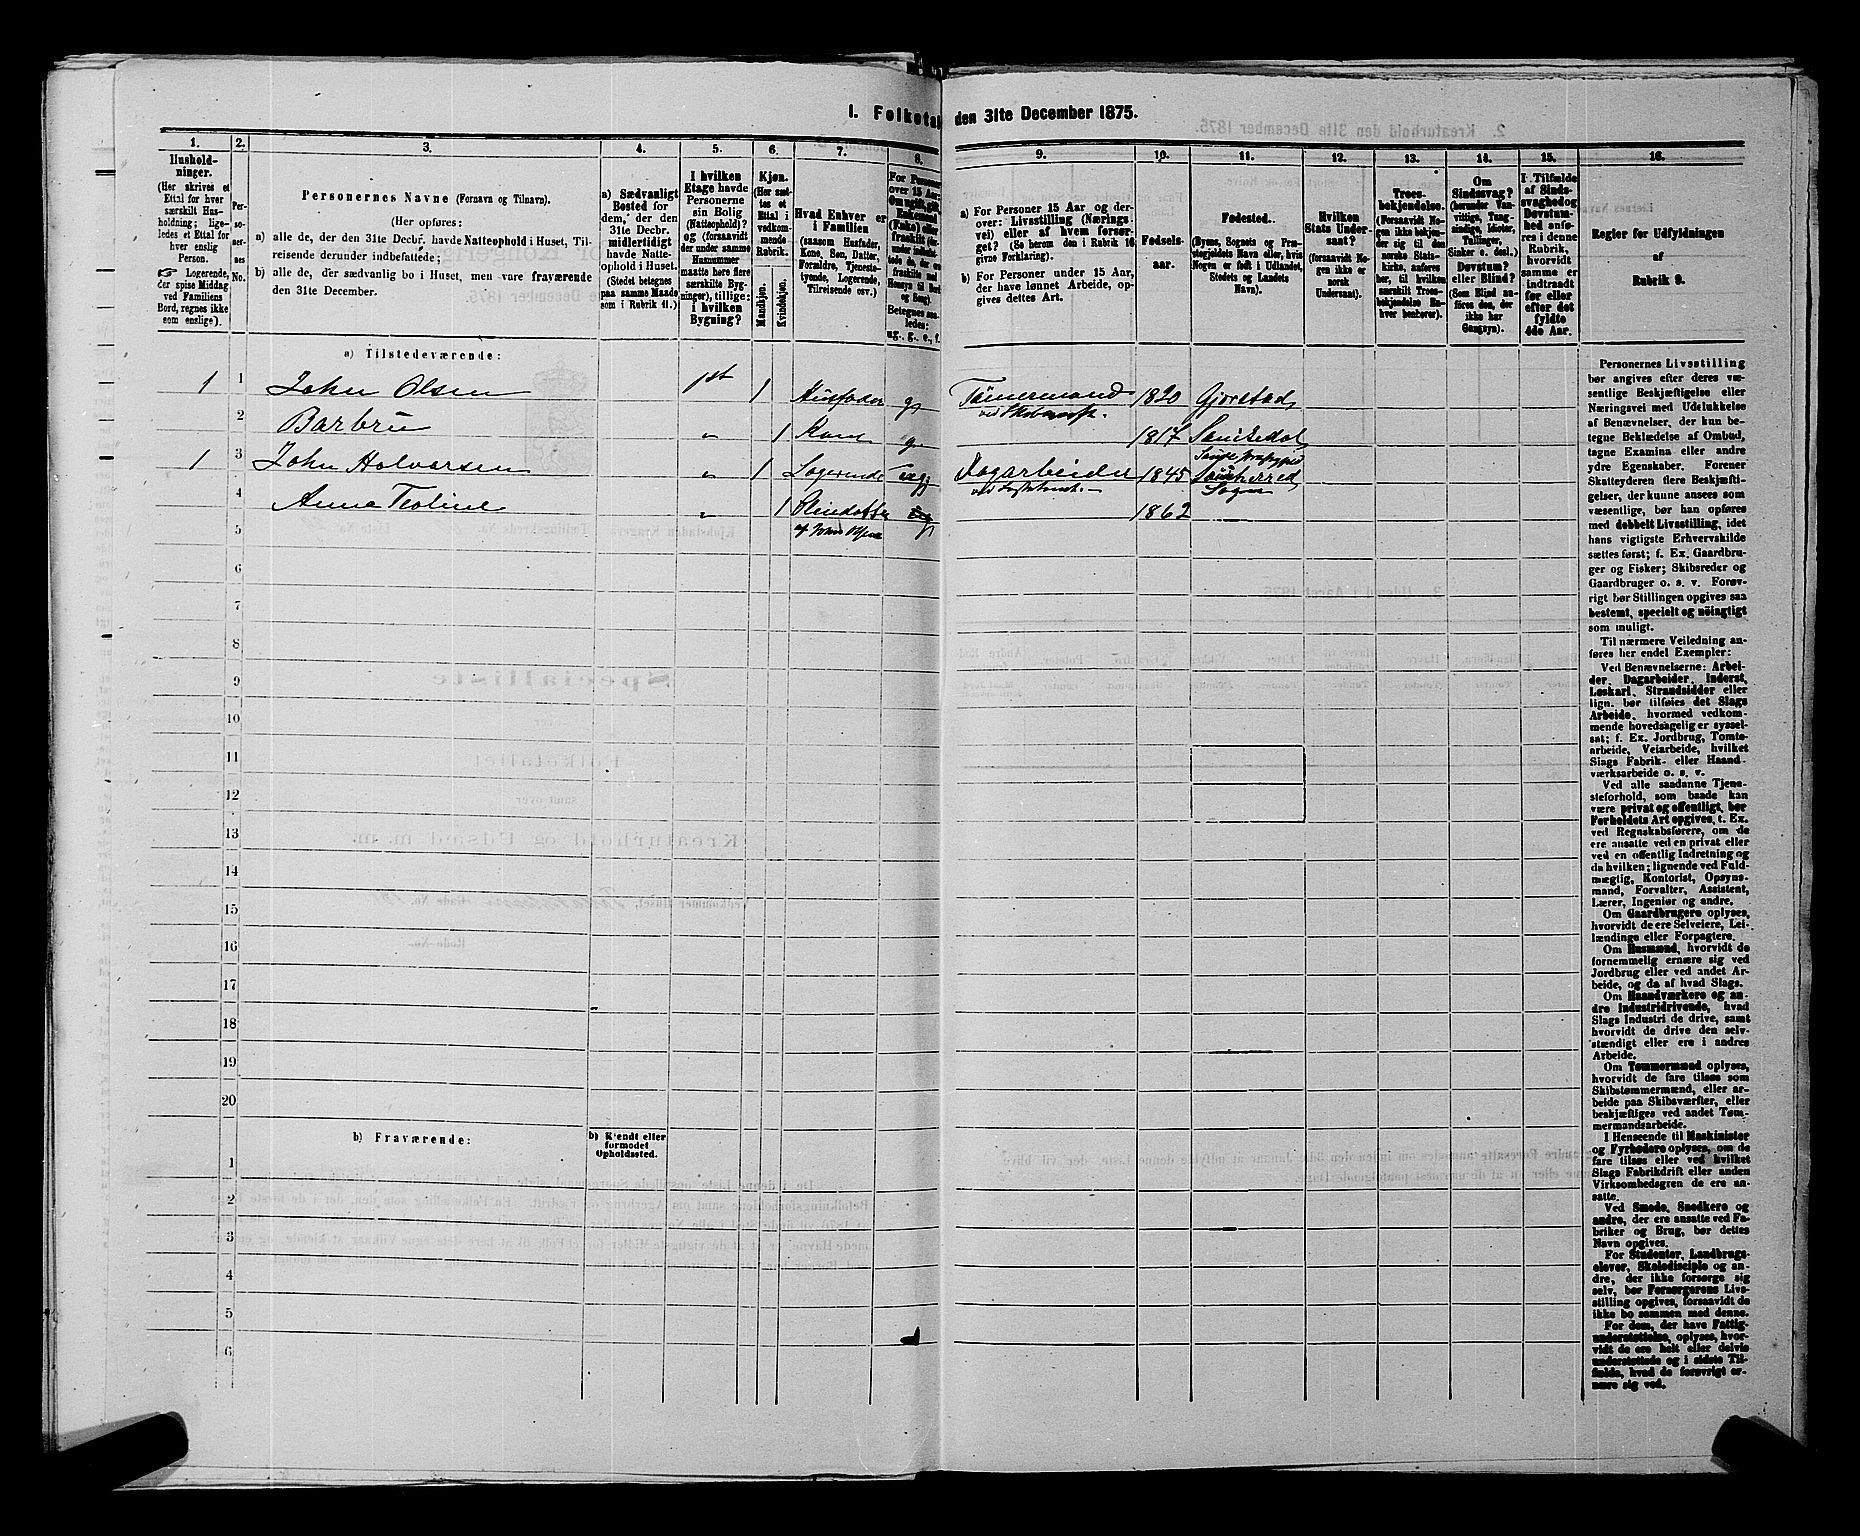 1. Folketal
den 31te December 1875.
1.
2.
3.
4.
5.
6.
7.
8.
9.
10.
11.
12.
13.
14.
15.
16.
Hushold-
ninger.
(Her skrives et
Ettal for hver
særskilt Hus-
holdning; lige-
ledes et Ettal for
hver enslig
Person.
Logerende,
der spise Middag
ved Familiens
Bord, regnes ikke
som enslige).
Per-
so-
ner-
nes
No.
Personernes Navne (Fornavn og Tilnavn).
(Her opføres:
a) alle de, der den 31te Decbr. havde Natteophold i Huset, Til-
reisende derunder indbefattede;
b) alle de, der sædvanlig bo i Huset, men vare fraværende
den 31te December.
a) Sædvanligt
Bosted for
dem, der den
31te Decbr.
midlertidigt
havde Natte-
ophold i Huset.
(Stedet betegnes
paa samme Maade
som i Rubrik 11.)
I hvilken
Etage havde
Personerne
sin Bolig
(Natteophold)?
og (forsaavidt
der under samme
Husnummer
maatte høre flere
særskilte Byg-
ninger), tillige:
i hvilken
Bygning?
Kjøn.
(Her sæt-
tes et
Ettal i
vedkom-
mende
Rubrik.
Mandkjøn.
Kvindekjøn.
Hvad Enhver er
i Familien
(saasom Husfader,
Kone, Søn, Datter,
Forældre, Tjeneste-
tyende, Logerende,
Tilreisende osv.)
For Personer
over 15 Aar:
Om ugift, gift,
Enkemand
(Enke) eller
fraskilt
Betegnes saa-
ledes:
ug., g., e., f.
a) For Personer 15 Aar og der-
over: Livsstilling (Nærings-
vei) eller af hvem forsør-
get? (Se herom den i Rubrik 16
givne Forklaring).
b) For Personer under 15 Aar,
der have lønnet Arbeide, op-
gives dettes Art.
Fødsels-
aar.
Fødested.
(Byens, Sognets og Præ-
stegjeldets Navn eller, hvis
Nogen er født i Udlandet,
Stedets og Landets
Navn).
Hvilken
Stats Under-
saat?
(forsaavidt No-
gen ikke er
norsk
Undersaat).
Troes-
bekjendelse.
(Forsaavidt No-
gen ikke bekjen-
der sig til den
norske Stats-
kirke, anføres
her, til hvilken
særskilt Troes-
bekjendelse En-
hver henhører).
Om
Sindssvag?
(herunder Van-
vittige, Tung-
sindige, Idioter,
Tullinger,
Sinker o. desl.).
Døvstum?
eller Blind?
(Som Blind an-
føres den, der
ikke har
Gangsyn).
I Tilfælde
af Sinds-
svaghed og
Døvstum-
hed anfø-
res i denne
Rubrik,
hvorvidt
samme er
indtraadt
før eller
efter det
fyldte
4de Aar.
Regler for Udfyldningen
af
Rubrik 9.
a) Tilstedeværende:
1 1 John Olsen 1st 1 Husfader g Tömermand 1820 Gjerstad
2 Barbru " 1 Kone g 1817 Sanikedal
1 3 John Halvorsen " 1 Logerende ug Dagarbeider 1845 Sandherred
Sogn
4 Anna Teoline " 1 Pleiedatter ug 1862
af John Olsen
5
6
7
8
9
10
11
12
13
14
15
16
17
18
19
20
b) Fraværende:
b) Kjendt eller
formodet
Opholdssted.
1
2
3
4
5
6
Personernes Livsstilling
bør angives efter deres væ-
sentlige Beskjæftigelse eller
Næringsvei med Udelukkelse
af Benævnelser, der kun be-
tegne Beklædelse af Ombud,
tagne Examina eller andre
ydre Egenskaber. Forener
Skatteyderen flere Beskjæfti-
gelser, der kunne ansees som
væsentlige, bør han opføres
med dobbelt Livsstilling, idet
hans vigtigste Erhvervskilde
sættes først; f. Ex. Gaardbru-
ger og Fisker; Skibsreder og
Gaardbruger o. s. v. Forøv-
rigt bør Stillingen opgives saa
bestemt, specielt og nöiagtigt
som muligt.
Til nærmere Veiledning an-
føres her endel Exempler:
Ved Benævnelserne: Arbei-
der, Dagarbeider, Inderst,
Løskarl, Strandsidder eller
lign. bør tilføies det Slags
Arbeide, hvormed vedkom-
mende hovedsagelig er syssel-
sat; f. Ex. Jordbrug, Tomte-
arbeide, Veiarbeide, hvilket
Slags Fabrik- eller Haand-
værksarbeide o. s. v.
Ved alle saadanne Tjene-
steforhold, som baade kan
være privat og offentligt, bør
Forholdets Art opgives, t. Ex.
ved Regnskabsførere, om de
ere ansatte ved en privat eller
ved en offentlig Indretning og
da hvilken; lignende ved Fuld-
mægtig, Kontorist, Opsyns-
mand, Forvalter, Assistent,
Lærer, Ingeniør og andre.
Om Gaardbrugere oplyses,
hvorvidt de ere Selveiere, Lei-
lændinge eller Forpagtere.
Om Husmænd, hvorvidt de
fornemmelig ernære sig ved
Jordbrug eller ved andet Ar-
beide, og da af hvad Slags.
Om Haandværkere og an-
dre Industridrivende, hvad
Slags Industri de drive, samt
hvorvidt de drive den selv-
stændigt eller ere i andres
Arbeide.
Om Tømmermænd oplyses,
hvorvidt de fare tilsøs som
Skibstømmermænd, eller ar-
beide paa Skibsværfter, eller
beskjæftiges ved andet Tøm-
mermandsarbeide.
I Henseende til Maskinister
og Fyrbødere oplyses, om de
fare tilsøs eller ved hvilket
Slags Fabrikdrift eller anden
Virksomhedsgren de ere an-
satte.
Ved Smede, Snedkere og
andre, der ere ansatte ved Fa-
briker og Brug, bør dettes
Navn opgives.
For Studenter, Landbrugs-
elever, Skoledisciple og an-
dre, der ikke forsørge sig
selv, bør Forsørgerens Livs-
stilling opgives, forsaavidt de
ikke bo sammen med denne.
For dem, der have Fattig-
understøttelse, oplyses, hvor-
vidt de ere helt eller delvis
understøttede og i sidste Til-
fælde, hvad de forøvrigt er-
nære sig ved.